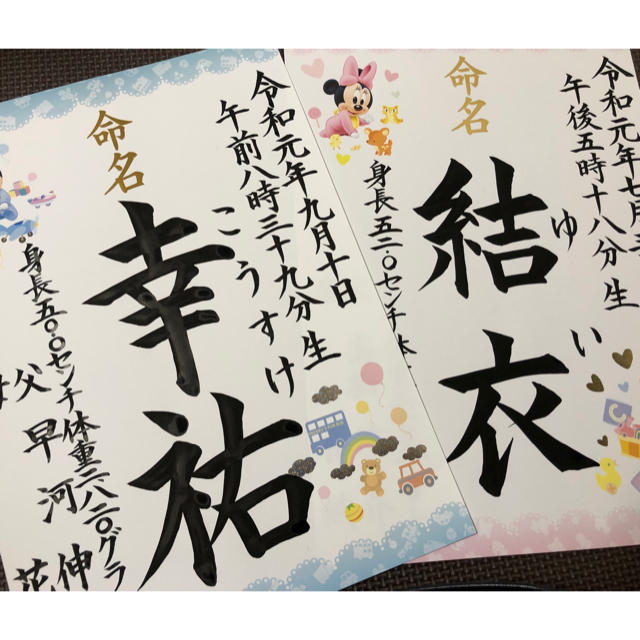 令和元年七月
午後五時十八分生
命名
結衣
ゆい
身長五二.〇センチ体
令和元年九月十日
午前八時三十九分生
命名
幸祐
こうすけ
身長五〇.〇センチ体重二八二〇グラ
父早河伸
花